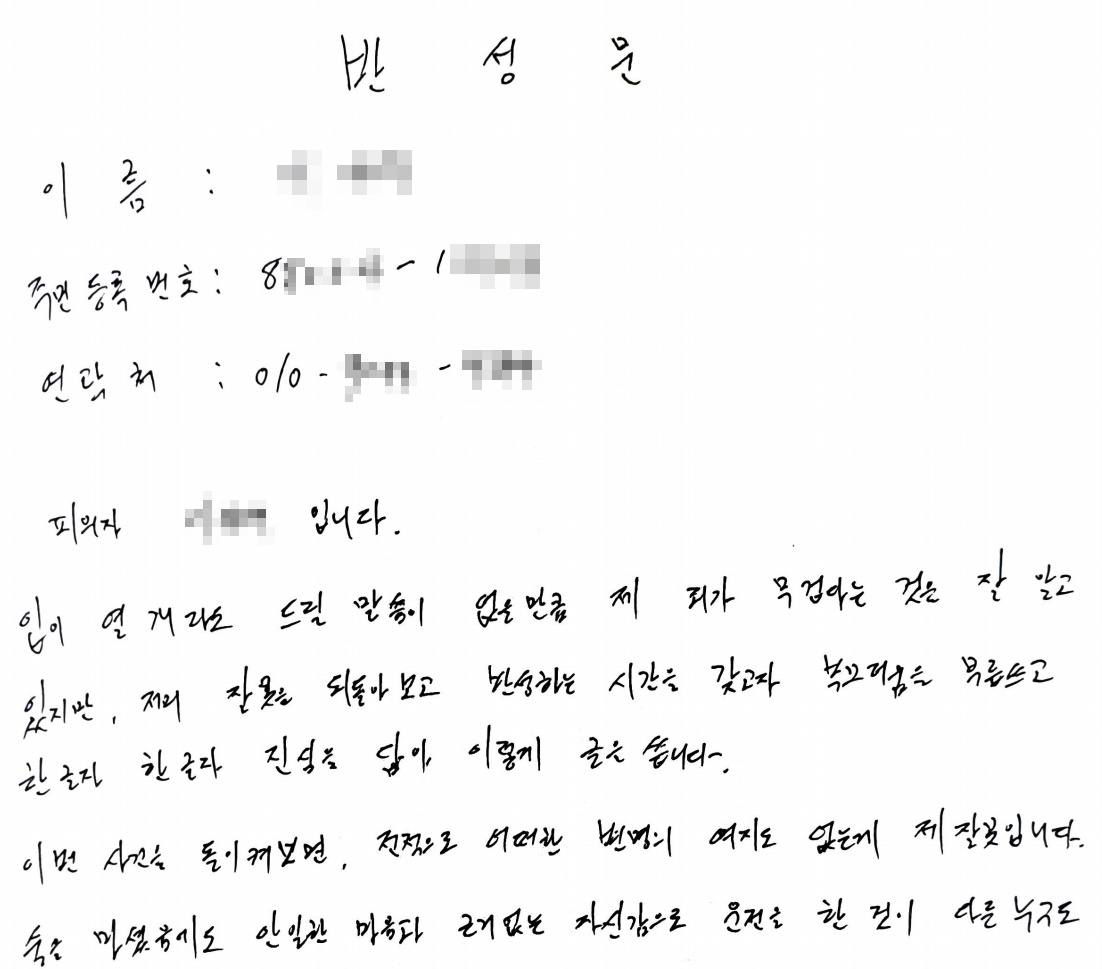 반 성 문
이 름 :
주민등록번호 : 8 - 1
연락처 : 010 - -
피의자 입니다.
입이 열 개라도 드릴 말씀이 없을만큼 제 죄가 무겁다는 것은 잘 알고
있지만, 저의 잘못을 되돌아보고 반성하는 시간을 갖고자 부끄러움을 무릅쓰고
한글자 한글자 진심을 담아, 이렇게 글은 씁니다.
이번 사건을 돌이켜보면, 전적으로 어떠한 변명의 여지도 없는게 제 잘못입니다.
술을 마셨음에도 안일한 마음과 근거없는 자신감으로 운전을 한 것이 다른 누구도